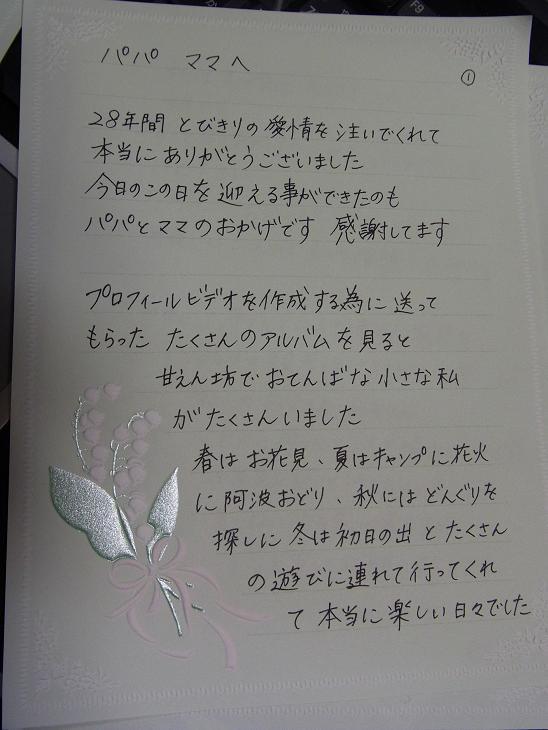 パパ ママへ
①
28年間 とびきりの愛情を注いでくれて
本当にありがとうございました
今日のこの日を迎える事ができたのも
パパとママのおかげです 感謝してます
プロフィールビデオを作成する為に送って
もらった たくさんのアルバムを見ると
甘えん坊でおてんばな小さな私
がたくさんいました
春はお花見、夏はキャンプに花火
に阿波おどり、秋にはどんぐりを
探しに冬は初日の出とたくさん
の遊びに連れて行ってくれ
て本当に楽しい日々でした